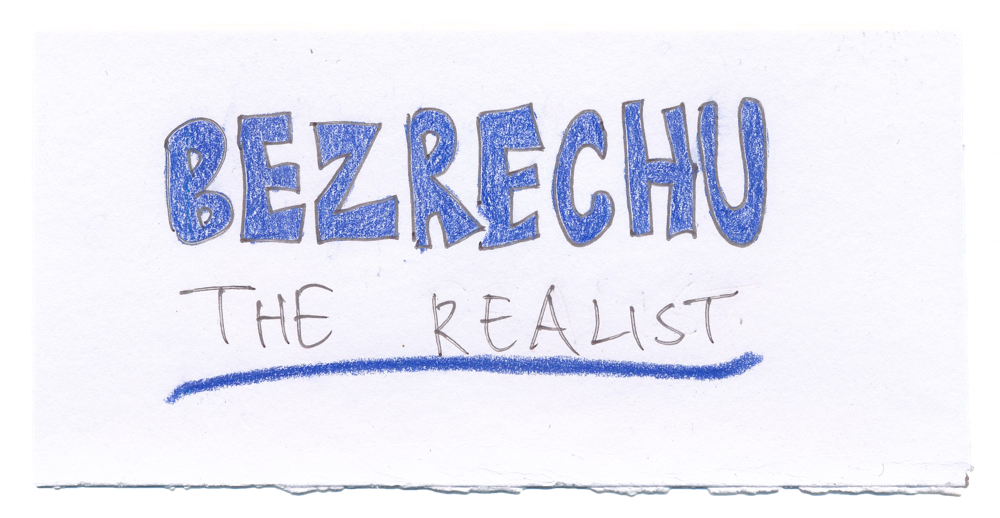 BEZRECHU
THE REALIST